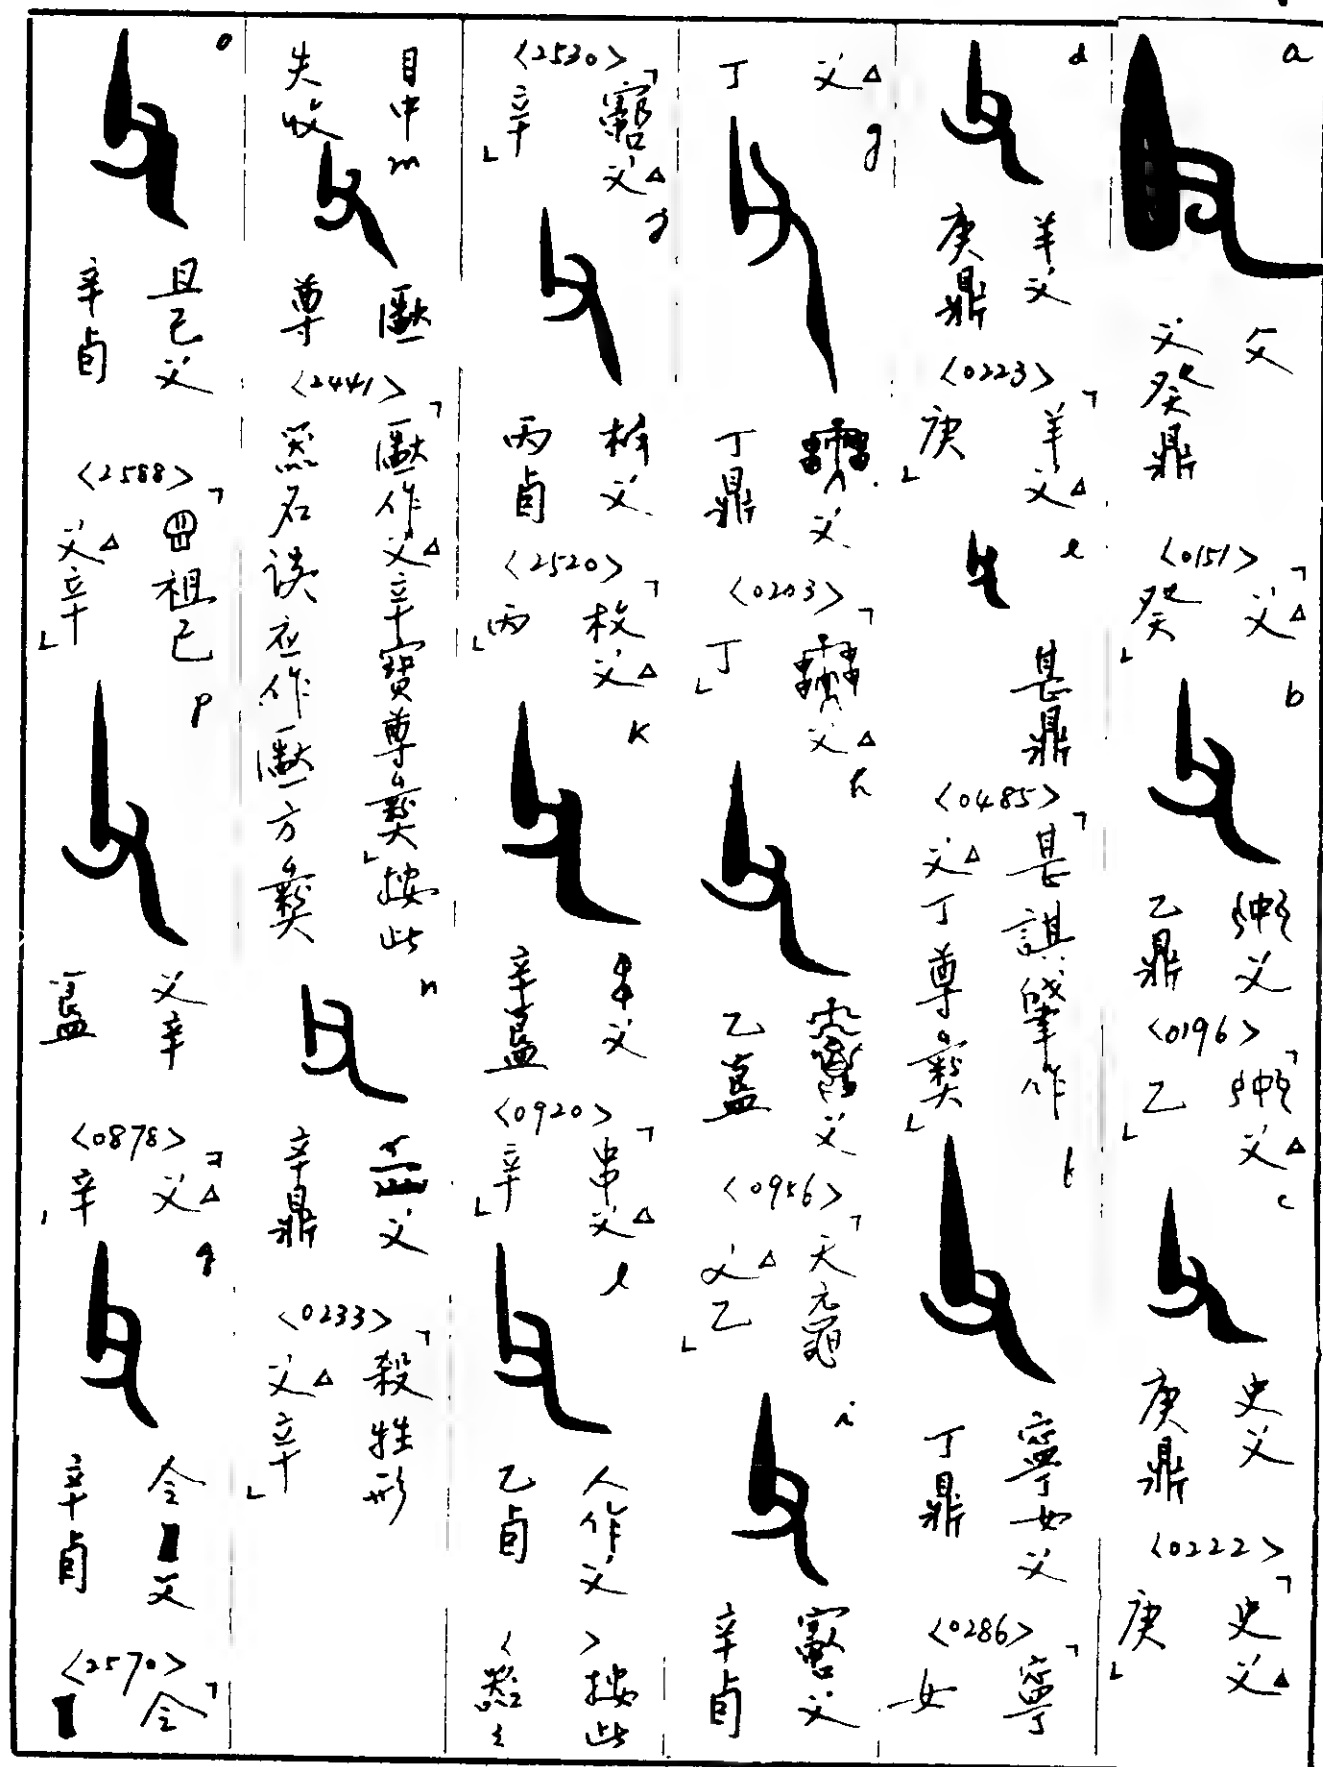 a
父
父癸鼎
<0151>
「父△
癸」
b
父
乙鼎
<0196>
父△
乙」
c
史父
庚鼎
<0222>
「史父△
庚」
d
羊父
庚鼎
<0223>
「羊父△
庚」
e
甚鼎
<0485>
「甚諆肈作
父△丁尊彝」
f
寧女父
丁鼎
<0286>
「寧
女
父△
丁
g
父
丁鼎
<0203>
父△
丁」
h
父
乙盉
<0956>
「天黿
父△乙」
i
父
辛卣
<2530>
父△
辛」
j
父
丙卣
<2520>
「枚父△
丙」
k
父
辛盉
<0920>
「串父△
辛」
l
人作父
乙卣
< >按此
器之
目中
失收
m
尊
<2441>
作父△辛寶尊彝」按此
器名誤應作 方彝
n
父
辛鼎
<0233>
「殺牲形
父△辛」
o
且己父
辛卣
<2588>
祖己
父△辛」
p
父辛
盉
<0878>
「父△
辛」
q
令 父
辛卣
<2570>
「令